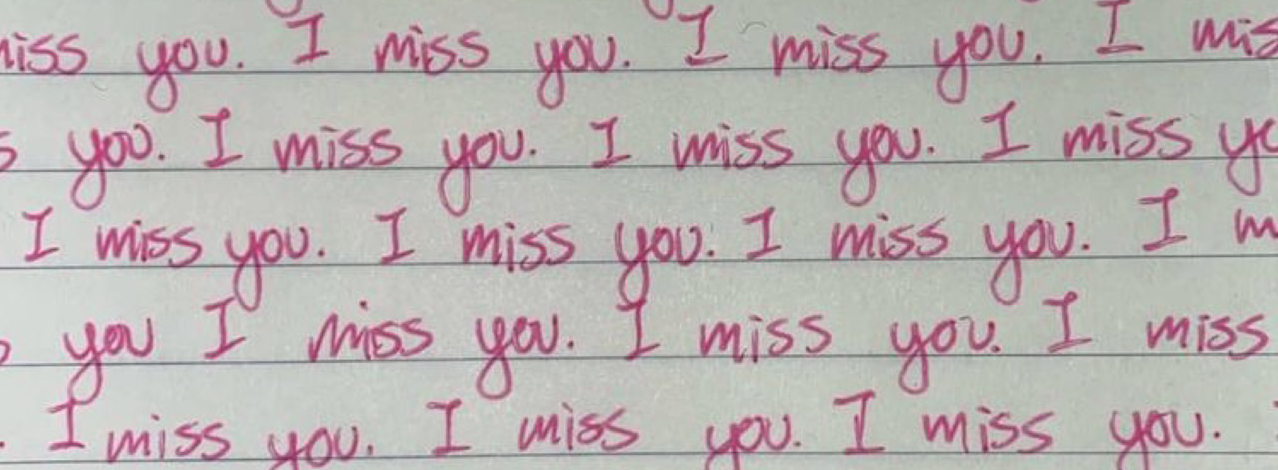 miss you. I miss you. I miss you. I mis
s you. I miss you. I miss you. I miss yo
I miss you. I miss you. I miss you. I m
you I miss you. I miss you. I miss
. I miss you. I miss you. I miss you.